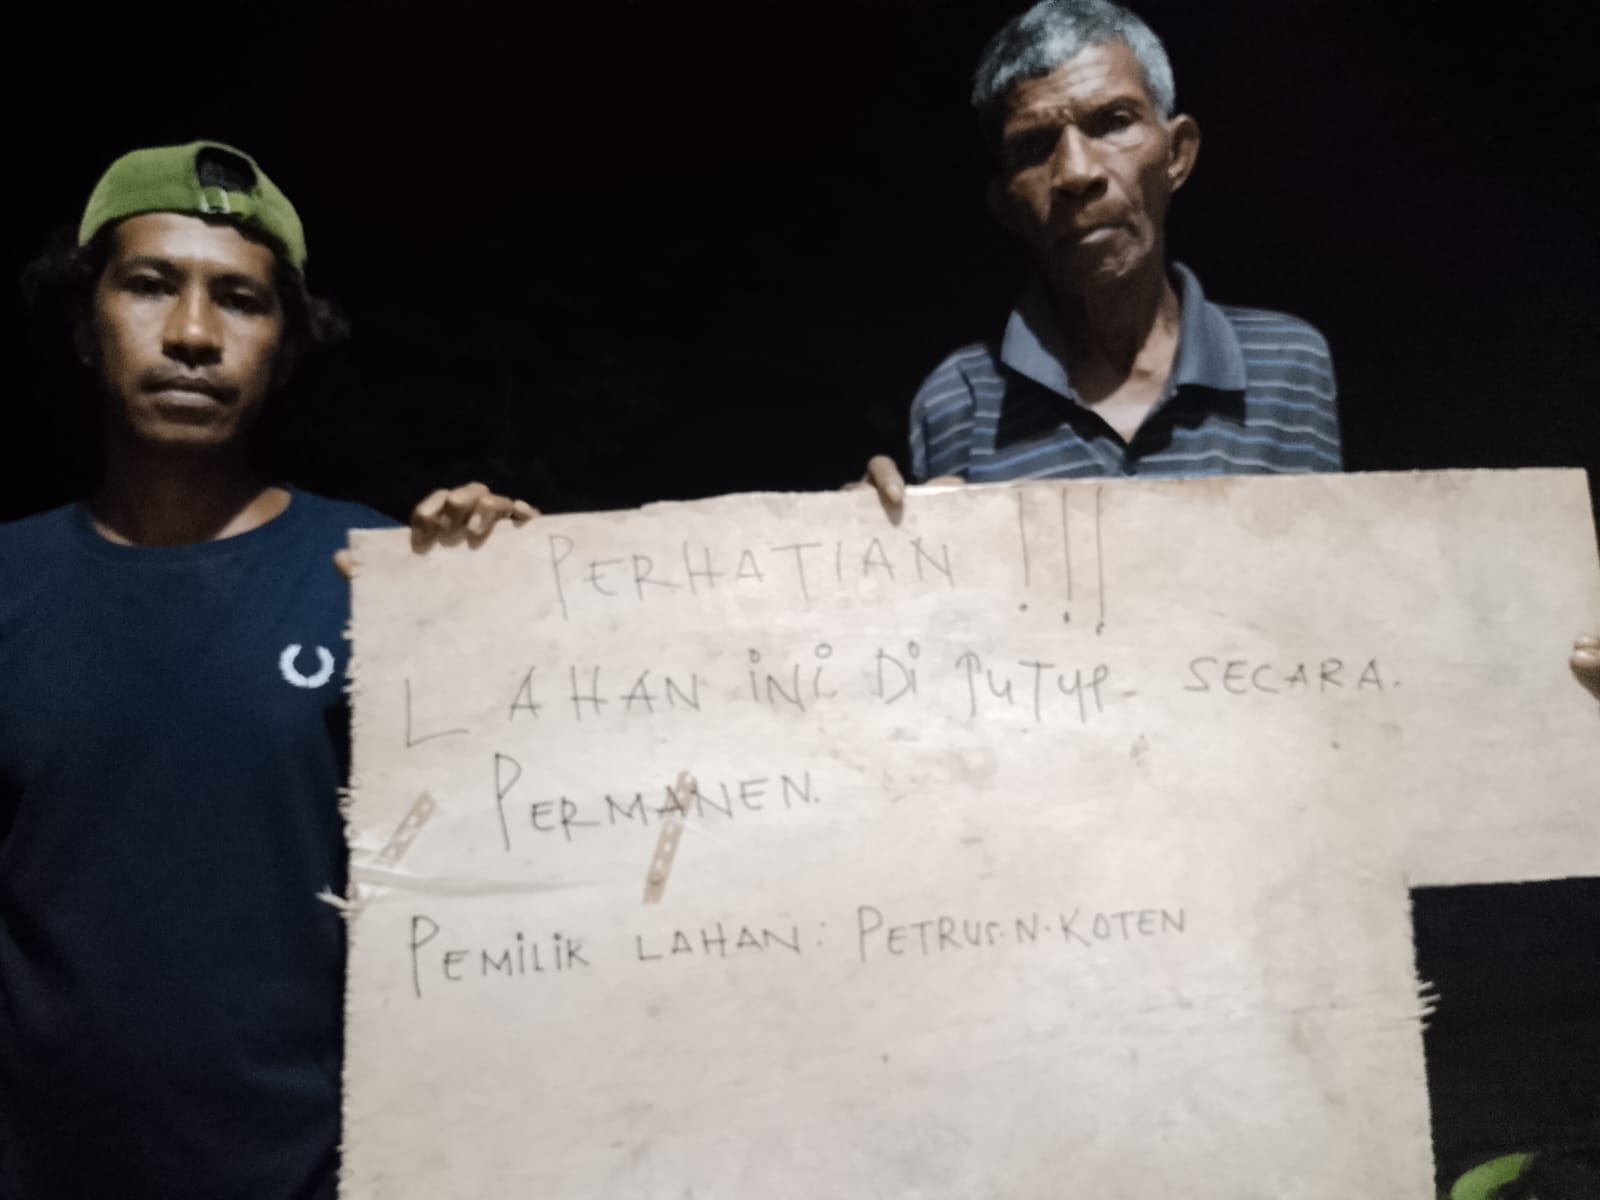 PERHATIAN !!!
LAHAN INI DI TUTUP. SECARA.
PERMANEN.
PEMILIK LAHAN: PETRUS.N.KOTEN